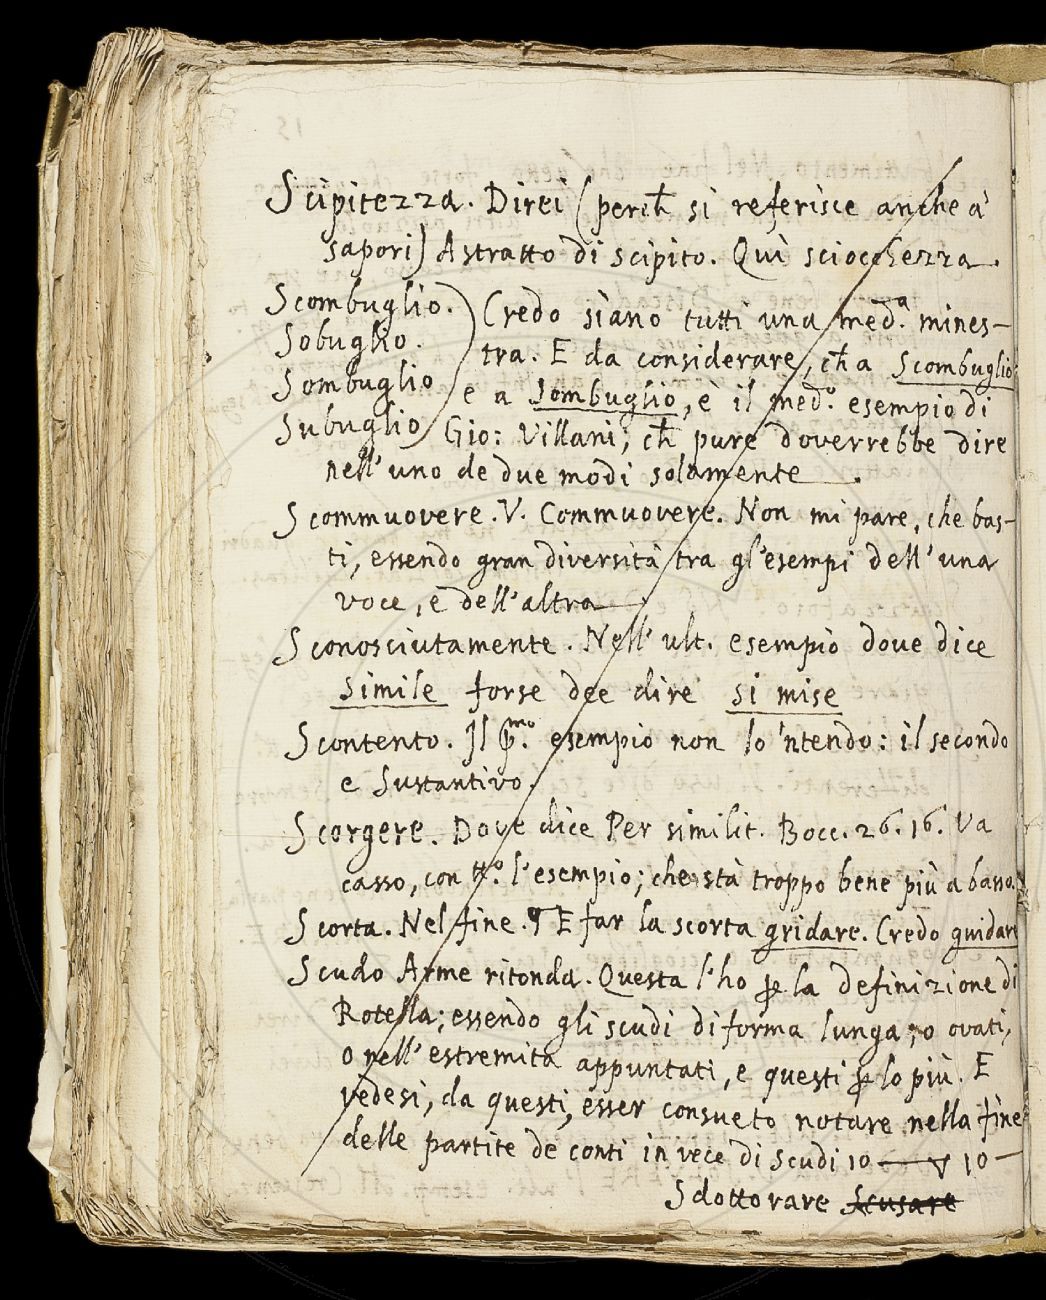 Scipitezza. Direi (perch̄ si referisce anche à
sapori) Astratto di scipito. Quì sciocchezza.
Scombuglio.) Credo siano tutti una med.ª mines-
Sobuglio. tra. E da considerare, ch̄ a Scombuglio
Sombuglio e a Sombuglio, è il med.º esempio di
Subuglio Gio: Villani, ch̄ pure doverrebbe dire
nell'uno de due modi solamente.
Scommuovere. V. Commuovere. Non mi pare, che bas-
ti, essendo gran diversità tra gl'esempi dell'una
voce, e dell'altra.
Sconosciutamente. Nell'ult. esempio dove dice
simile forse dee dire si mise
Scontento. Il p.mo esempio non lo 'ntendo: il secondo
e Sustantivo.
Scorgere. Dove dice Per similit. Bocc. 26. 16. Va
casso, con tt.º l'esempio; che stà troppo bene più a basso.
Scorta. Nel fine. ¶ E far la scorta gridare. Credo guidare
Scudo Arme ritonda. Questa l'ho ꝑ la definizione di
Rotella; essendo gli scudi di forma lunga, o ovati,
o nell'estremità appuntati, e questi ꝑ lo più. E
vedesi, da questi, esser consueto notare nella fine
delle partite de conti in vece di scudi 10 — ▽ 10 —
Sdottorare Scusare